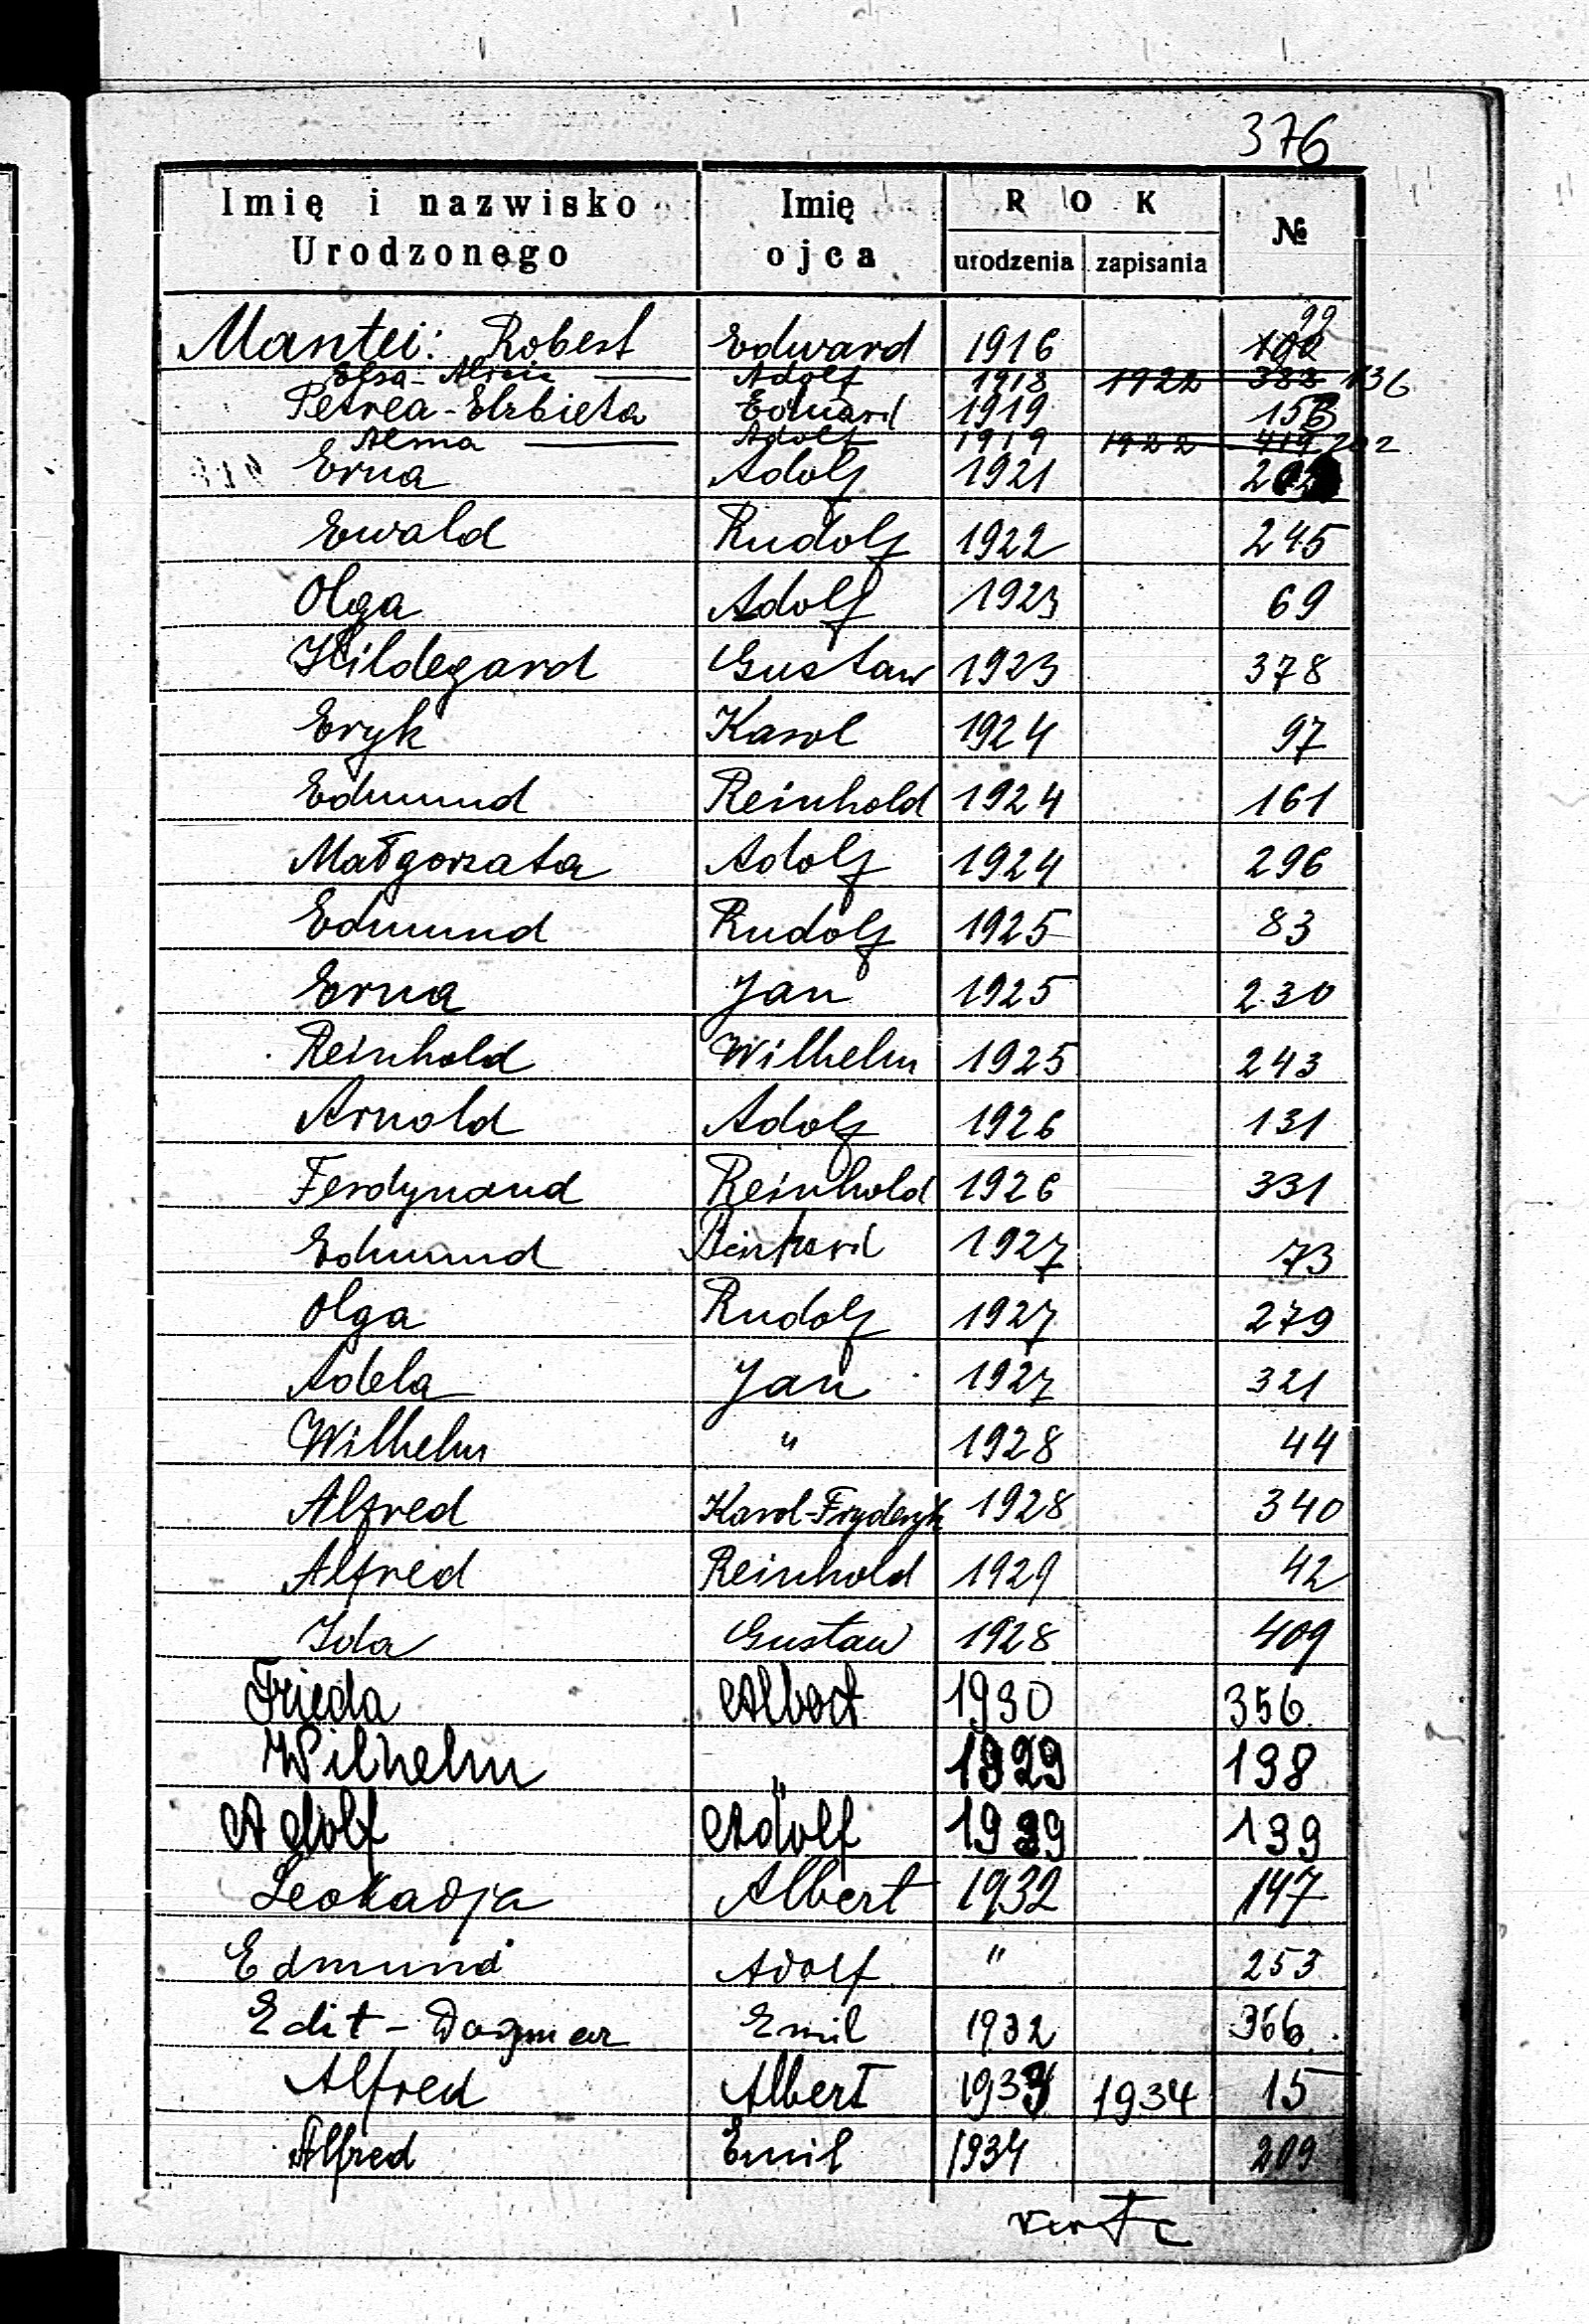 376
Imię i nazwisko Urodzonego Imię ojca ROK urodzenia zapisania №
99
Mantei: Robert Edward 1916
Elsa-Alicja Adolf 1918 1922 382 136
Petrea-Elżbieta Eduard 1919 156
Alma Adolf 1919 1922 419 202
Erna Adolf 1921
Ewald Rudolf 1922 245
Olga Adolf 1923 69
Hildegard Gustaw 1923 378
Eryk Karol 1924 97
Edmund Reinhold 1924 161
Małgorzata Adolf 1924 296
Edmund Rudolf 1925 83
Erna Jan 1925 230
Reinhold Wilhelm 1925 243
Arnold Adolf 1926 131
Ferdynand Reinhold 1926 331
Edmund 1927 73
Olga Rudolf 1927 279
Adela Jan 1927 321
Wilhelm " 1928 44
Alfred Karol-Fryderyk 1928 340
Alfred Reinhold 1929 42
Ida Gustaw 1928 409
Frieda Albert 1930 356
Wilhelm " 1929 198
Adolf Adolf 1929 139
Leokadja Albert 1932 147
Edmund Adolf " 253
Edit-Dagmar Emil 1932 366
Alfred Albert 1933 1934 15
Alfred Emil 1934 209